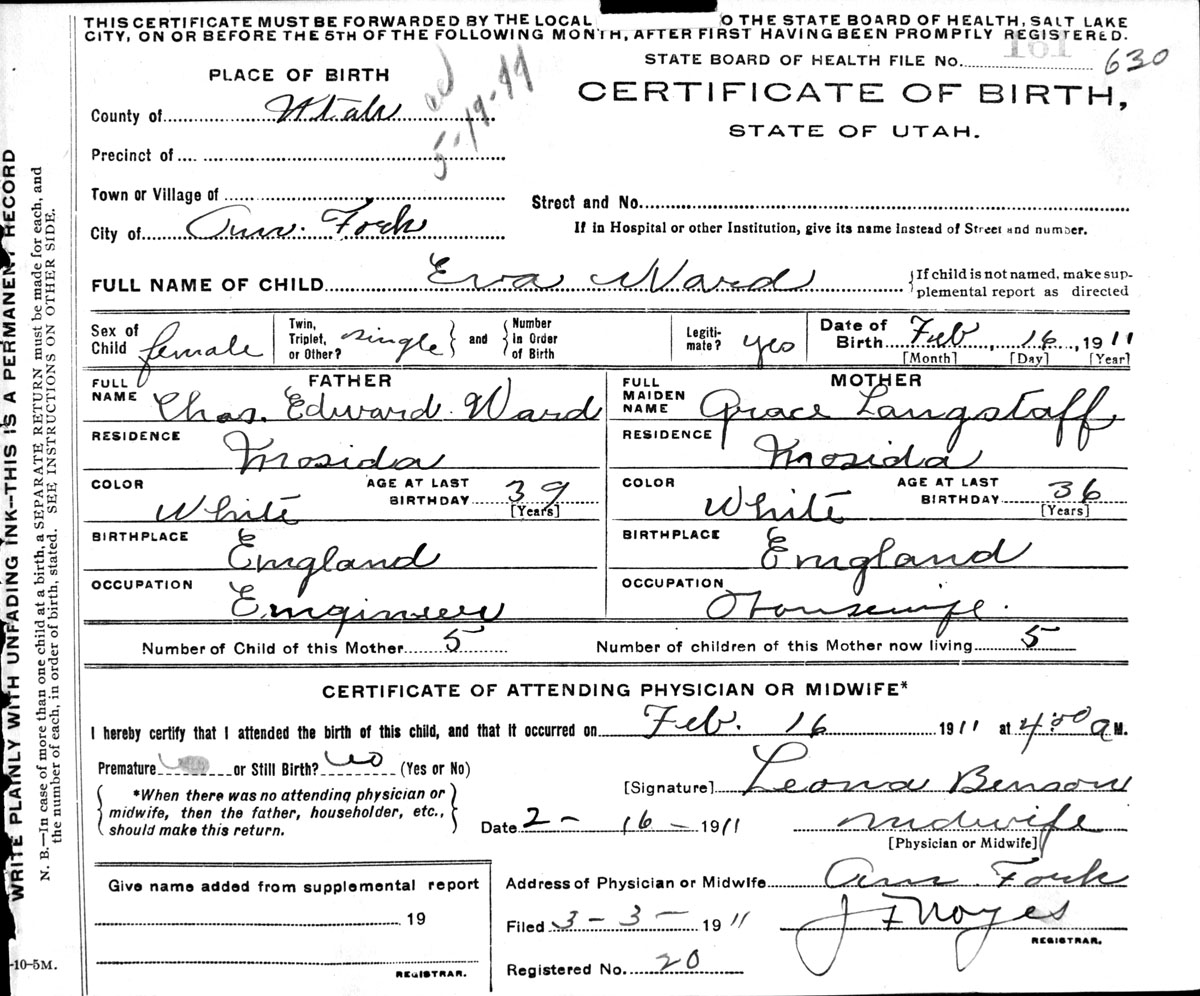 THIS CERTIFICATE MUST BE FORWARDED BY THE LOCAL O THE STATE BOARD OF HEALTH, SALT LAKE
CITY, ON OR BEFORE THE 5TH OF THE FOLLOWING MONTH, AFTER FIRST HAVING BEEN PROMPTLY REGISTERED.
STATE BOARD OF HEALTH FILE No. 101 630
PLACE OF BIRTH
CERTIFICATE OF BIRTH,
STATE OF UTAH.
County of Utah
5-19-44
Precinct of
Town or Village of
Street and No.
City of Am. Fork
If in Hospital or other Institution, give its name instead of Street and number.
FULL NAME OF CHILD Eva Ward
{If child is not named, make sup-
plemental report as directed
Sex of Child female
Twin, Triplet, or Other? single } and { Number in Order of Birth
Legiti-mate? yes
Date of Birth Feb, 16, 1911
[Month] [Day] [Year]
FATHER
FULL NAME Chas. Edward Ward
RESIDENCE Mosida
COLOR White
AGE AT LAST BIRTHDAY 39
[Years]
BIRTHPLACE England
OCCUPATION Engineer
MOTHER
FULL MAIDEN NAME Grace Langstaff
RESIDENCE Mosida
COLOR White
AGE AT LAST BIRTHDAY 36
[Years]
BIRTHPLACE England
OCCUPATION Housewife.
Number of Child of this Mother 5
Number of children of this Mother now living 5
CERTIFICATE OF ATTENDING PHYSICIAN OR MIDWIFE*
I hereby certify that I attended the birth of this child, and that it occurred on Feb. 16 1911 at 4:00 a M.
Premature or Still Birth? no (Yes or No)
[Signature] Leona Benson
{ *When there was no attending physician or
midwife, then the father, householder, etc.,
should make this return. }
Date 2 - 16 - 1911
midwife
[Physician or Midwife]
Give name added from supplemental report
19
REGISTRAR.
Address of Physician or Midwife Am. Fork
Filed 3 - 3 - 1911
J F Noyes
REGISTRAR.
Registered No. 20
WRITE PLAINLY WITH UNFADING INK--THIS IS A PERMANENT RECORD
N. B.—In case of more than one child at a birth, a SEPARATE RETURN must be made for each, and
the number of each, in order of birth, stated. SEE INSTRUCTIONS ON OTHER SIDE.
-10-5M.